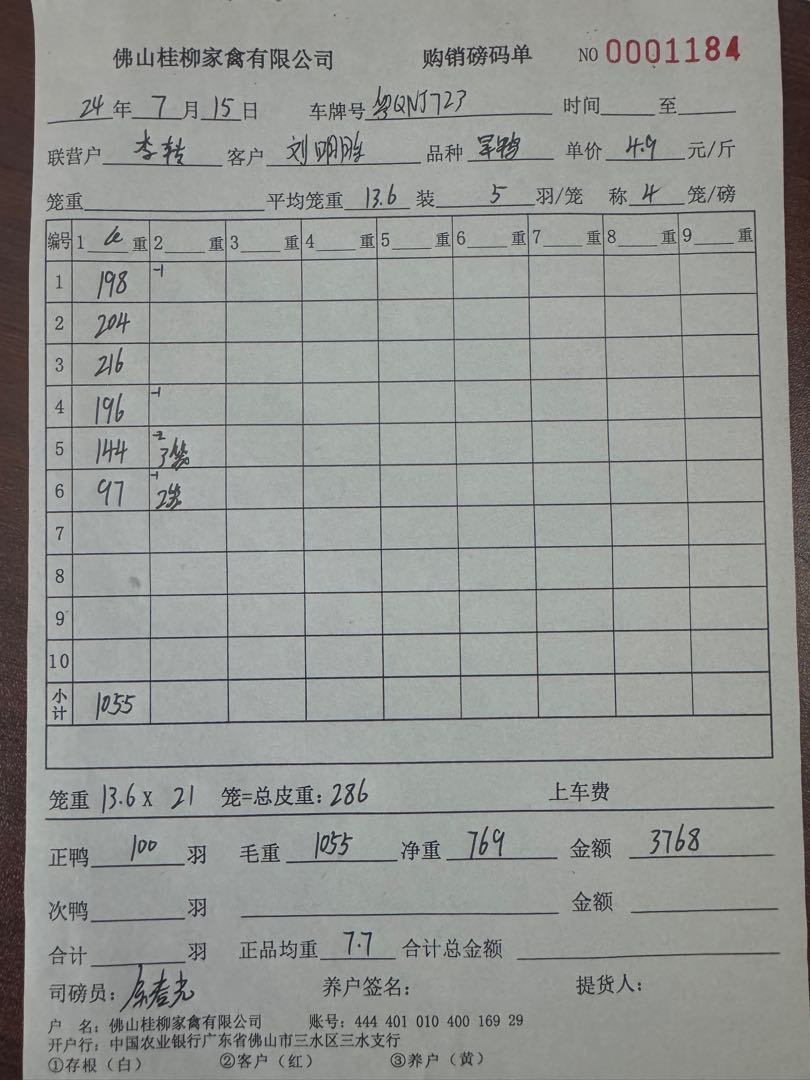 佛山桂柳家禽有限公司 购销磅码单 NO 0001184
24年 7月15日 车牌号 粤QNJ723 时间 至
联营户 李转 客户 刘明胜 品种 单价 4.9 元/斤
笼重 平均笼重 13.6 装 5 羽/笼 称 4 笼/磅
编号 1 重 2 重 3 重 4 重 5 重 6 重 7 重 8 重 9 重
1 198 -1
2 204
3 216
4 196 -1
5 144 -2 3笼
6 97 -1 2笼
7
8
9
10
小计 1055
笼重 13.6 X 21 笼=总皮重: 286 上车费
正鸭 100 羽 毛重 1055 净重 769 金额 3768
次鸭 羽 金额
合计 羽 正品均重 7.7 合计总金额
司磅员: 养户签名: 提货人:
户 名: 佛山桂柳家禽有限公司 账号: 444 401 010 400 169 29
开户行: 中国农业银行广东省佛山市三水区三水支行
①存根(白) ②客户(红) ③养户(黄)